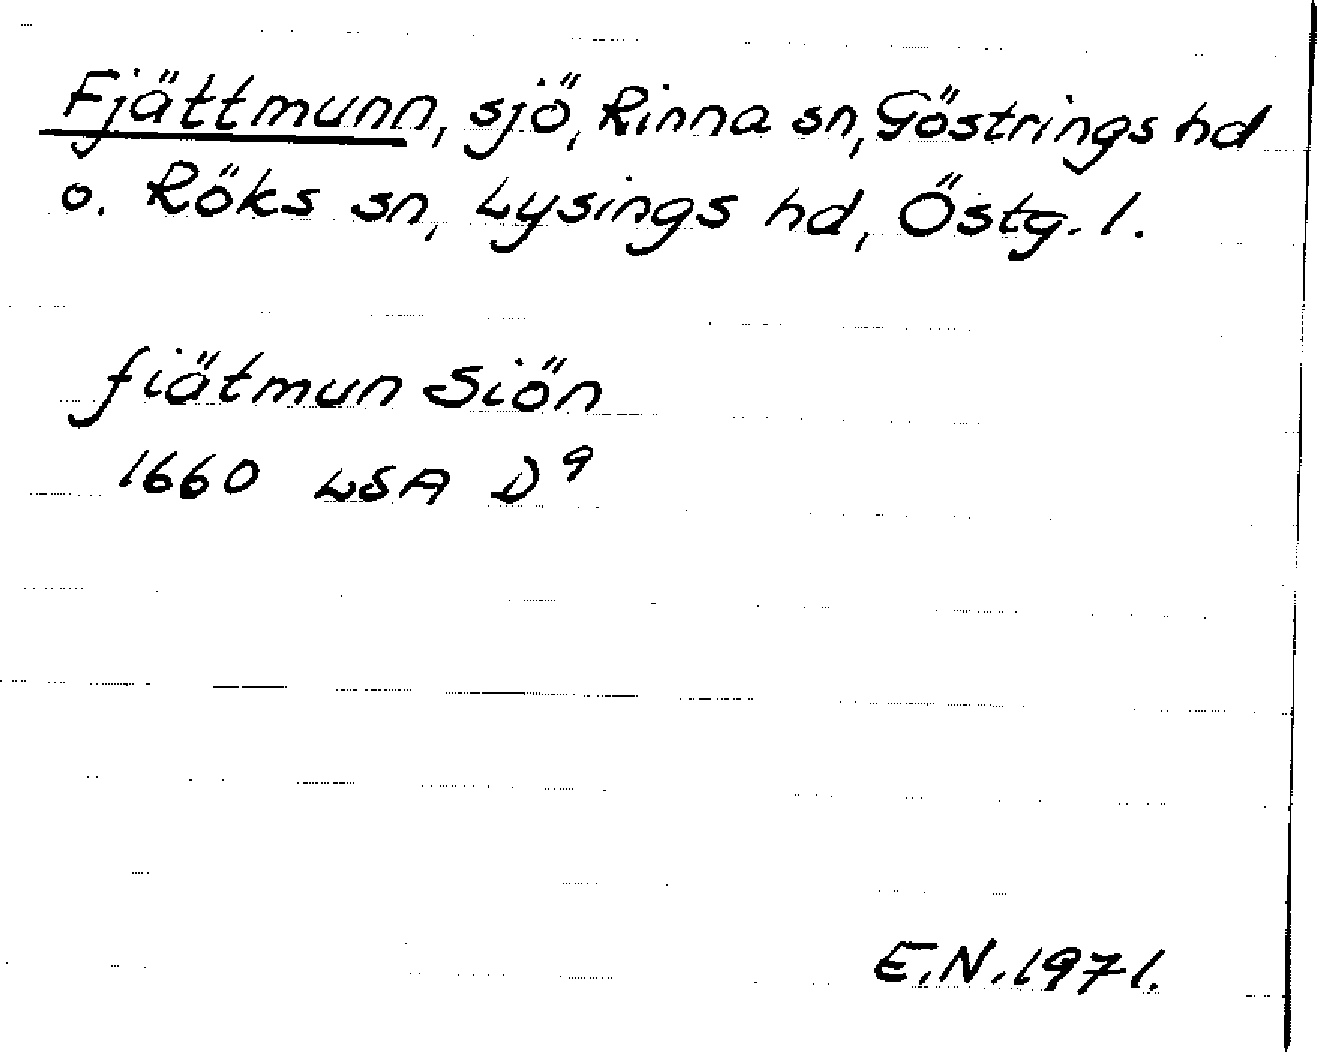 Fjättmunn, sjö, Rinna sn, Göstrings hd
o. Röks sn, Lysings hd, Östg. l.
fiätmun Siön
1660 LSA D⁹
E.N. 1971.